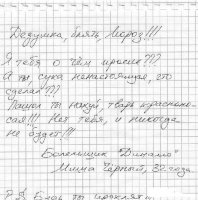 Дедушка, блять, Мороз!!!
Я тебя о чём просил???
А ты, сука ненастоящая, что
сделал???
Пошел ты нахуй, тварь красноно-
сая!!! Нет тебя, и никогда
не будет!!!
Болельщик "Динамо"
Миша Чёрный, 32 года.
P.S. Будь ты проклят...